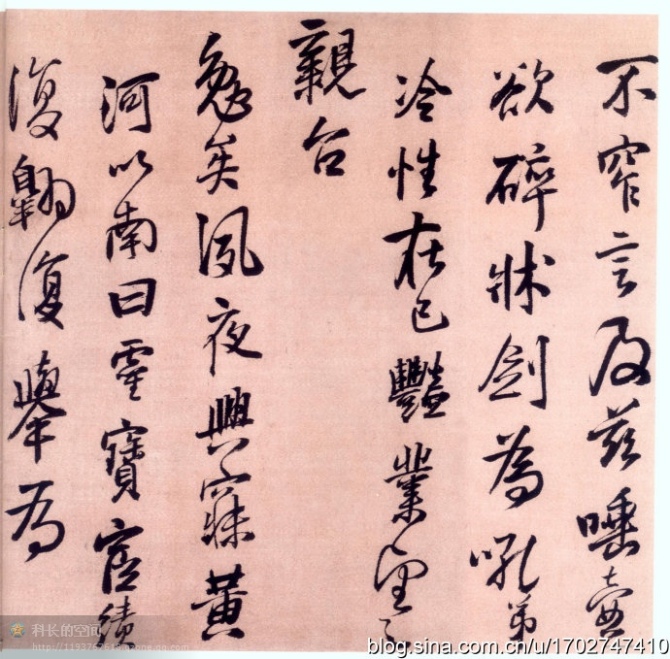 不窄言及茲唾壺
欲碎牀劍為吼弟
冷性在己豔業望之
親台
勉矣夙夜興寐黃
河以南曰靈寶宦績
復翱復舉為
科长的空间
blog.sina.com.cn/u/1702747410